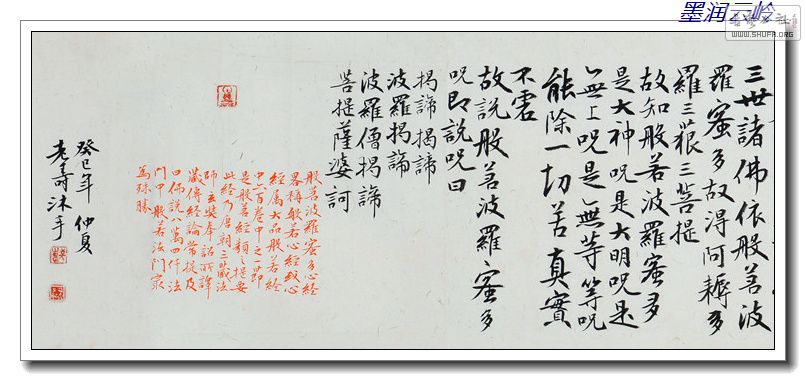 墨润云岭
WWW.SHUFA.ORG
三世諸佛依般若波
羅蜜多故得阿耨多
羅三藐三菩提
故知般若波羅蜜多
是大神呪是大明呪是
無上呪是無等等呪
能除一切苦真實
不虛
故說般若波羅蜜多
呪即說呪曰
揭諦揭諦
波羅揭諦
波羅僧揭諦
菩提薩婆訶
般若波羅蜜多心經
畧稱般若心經或心
經属大品般若經
中六百卷中之一節
是般若經類之提要
此經乃唐朝三藏法
師玄奘奉詔所譯
藏傳經論常提及
曰佛說八萬四仟法
門中般若法門最
爲殊勝
癸巳年仲夏
老壽沐手